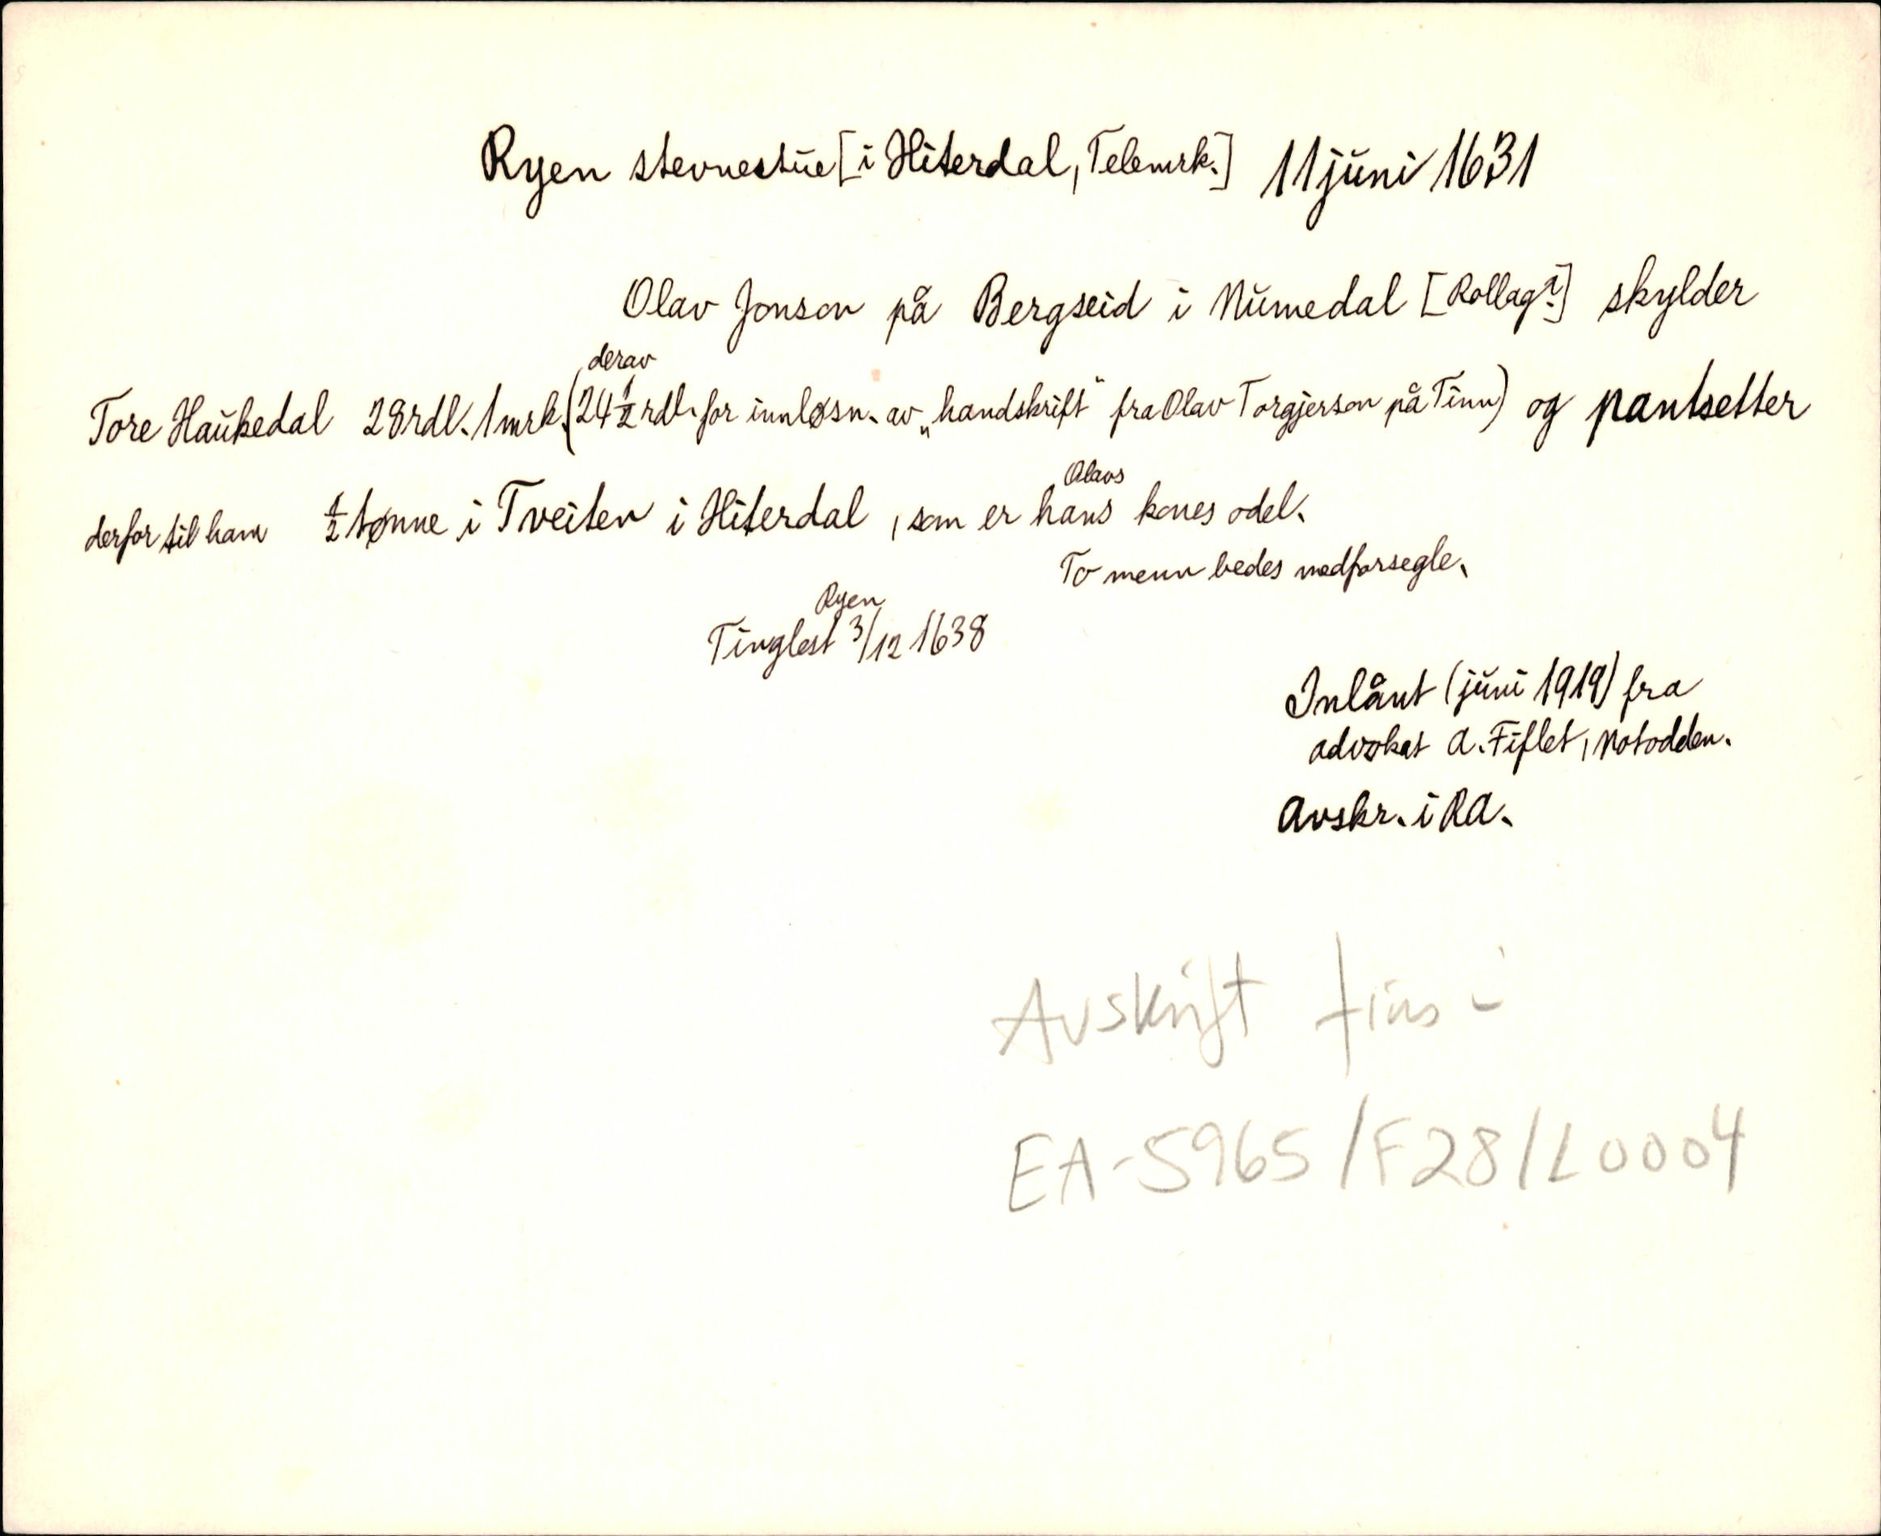 Ryen stevnestue [i Hiterdal, Telemrk.] 11 juni 1631
Olav Jonson på Bergseid i Numedal [Rollag?] skylder
derav
Tore Haukedal 28 rdl. 1 mrk. (24 1/2 rdl. for innløsn. av „handskrift“ fra Olav Torgjerson på Tinn) og pantsetter
Olavs
derfor til ham 1/2 tønne i Tveiten i Hiterdal, som er hans kones odel.
To menn bedes medforsegle.
Ryen
Tinglest 3/12 1638
Inlånt (juni 1919) fra
advokat A. Fiflet, Notodden.
Avskr. i RA.
Avskrift fins i
EA-5965/F28/L0004